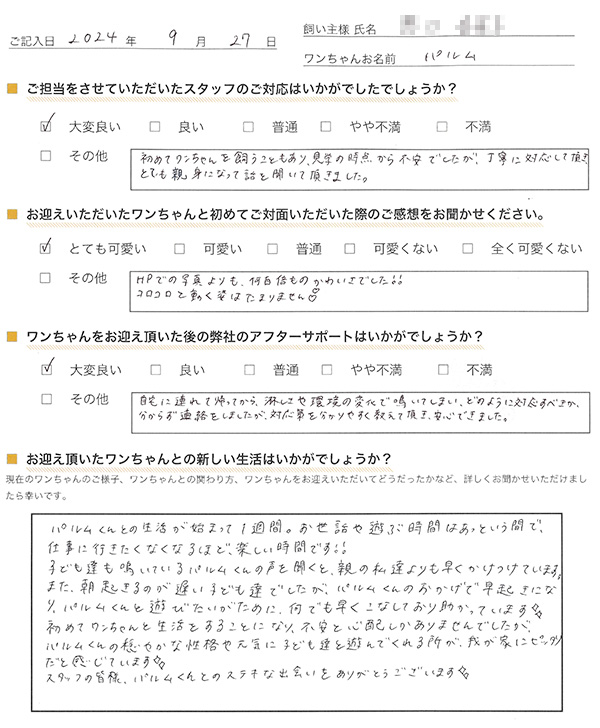 ご記入日 2024 年 9 月 27 日
飼い主様 氏名
ワンちゃんお名前 パルム
■ ご担当をさせていただいたスタッフのご対応はいかがでしたでしょうか？
☑ 大変良い □ 良い □ 普通 □ やや不満 □ 不満
□ その他
初めてワンちゃんを飼うこともあり、見学の時点から不安でしたが、丁寧に対応して頂き
とても親身になって話を聞いて頂きました。
■ お迎えいただいたワンちゃんと初めてご対面いただいた際のご感想をお聞かせください。
☑ とても可愛い □ 可愛い □ 普通 □ 可愛くない □ 全く可愛くない
□ その他
HPでの写真よりも、何百倍ものかわいさでした!!
コロコロと動く姿はたまりません♡
■ ワンちゃんをお迎え頂いた後の弊社のアフターサポートはいかがでしょうか？
☑ 大変良い □ 良い □ 普通 □ やや不満 □ 不満
□ その他
自宅に連れて帰ってから、淋しさや環境の変化で鳴いてしまい、どのように対応すべきか、
分からず連絡をしましたが、対応策を分かりやすく教えて頂き、安心できました。
■ お迎え頂いたワンちゃんとの新しい生活はいかがでしょうか？
現在のワンちゃんのご様子、ワンちゃんとの関わり方、ワンちゃんをお迎えいただいてどうだったかなど、詳しくお聞かせいただけまし
たら幸いです。
パルムくんとの生活が始まって1週間。お世話や遊ぶ時間はあっという間で、
仕事に行きたくなくなるほど、楽しい時間です!!
子ども達も鳴いているパルムくんの声を聞くと、親の私達よりも早くかけつけています。
また、朝起きるのが遅い子ども達でしたが、パルムくんのおかげで早起きにな
り、パルムくんと遊びたいがために、何でも早くこなしており助かっています✨
初めてワンちゃんと生活をすることになり、不安と心配しかありませんでしたが、
パルムくんの穏やかな性格や元気に子ども達と遊んでくれる所が、我が家にピッタリ
だと感じています✨
スタッフの皆様、パルムくんとのステキな出会いをありがとうございます✨